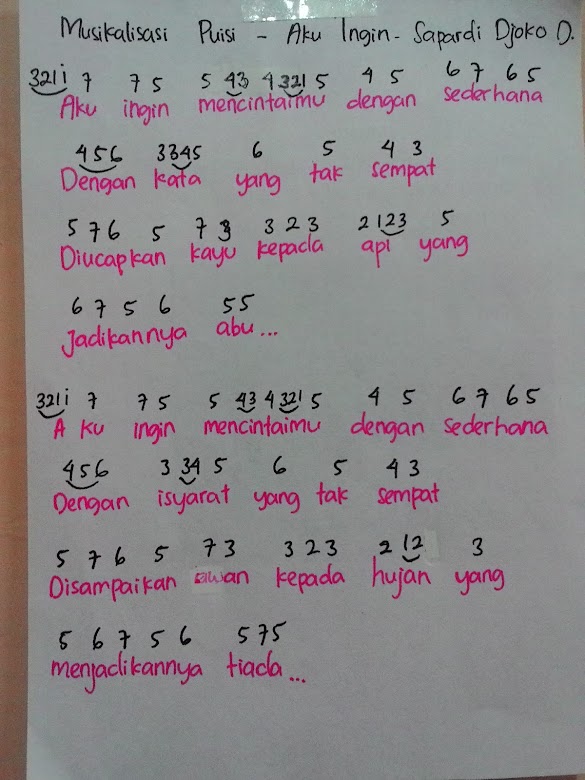 Musikalisasi Puisi - Aku Ingin - Sapardi Djoko D.
321i 7 75 5 43 4 321 5 4 5 6 7 6 5
Aku ingin mencintaimu dengan sederhana
456 3345 6 5 4 3
Dengan kata yang tak sempat
5 7 6 5 7 3 3 2 3 2 123 5
Diucapkan kayu kepada api yang
6 7 5 6 55
Jadikannya abu...
321i 7 75 5 43 4 321 5 4 5 6 7 6 5
Aku ingin mencintaimu dengan sederhana
456 3 34 5 6 5 4 3
Dengan isyarat yang tak sempat
5 7 6 5 7 3 3 2 3 2 12 3
Disampaikan awan kepada hujan yang
5 6 7 5 6 5 7 5
menjadikannya tiada...